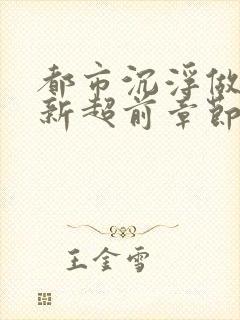 都市沉浮做
新超前章節
王金雪